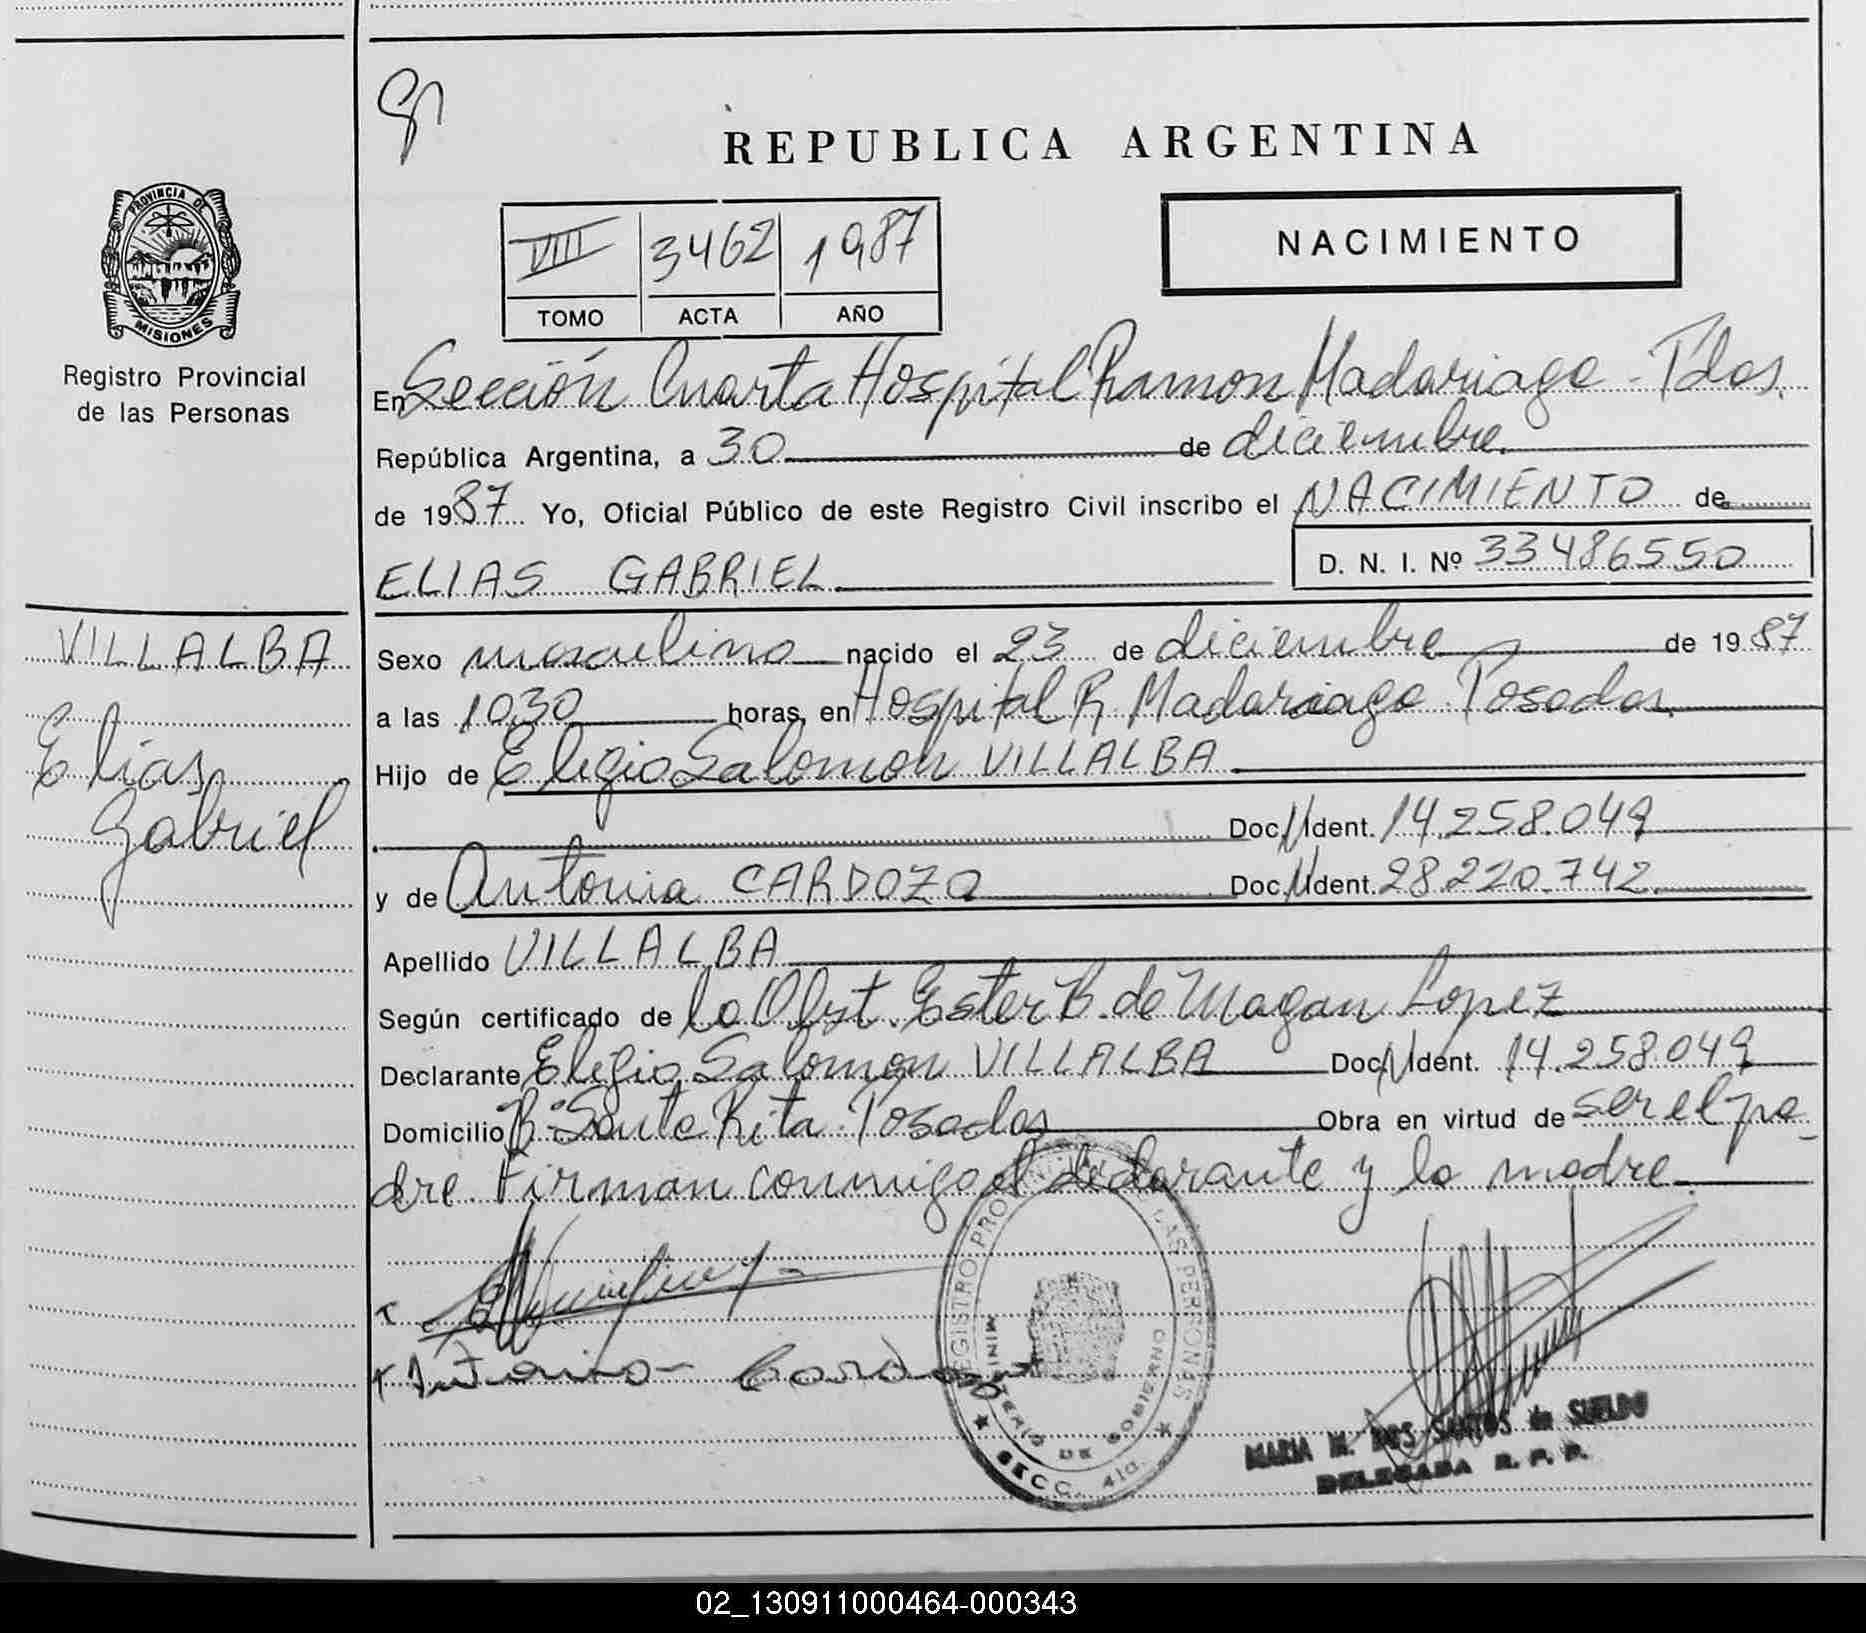 REPUBLICA ARGENTINA
PROVINCIA DE MISIONES
Registro Provincial
de las Personas
VIII 3462 1987
TOMO ACTA AÑO
NACIMIENTO
En Sección Cuarta Hospital Ramon Madariaga - Pdas.
República Argentina, a 30 de diciembre
de 1987 Yo, Oficial Público de este Registro Civil inscribo el NACIMIENTO de
ELIAS GABRIEL D. N. I. Nº 33486550
VILLALBA
Elias
Gabriel
Sexo masculino nacido el 23 de diciembre de 1987
a las 10,30 horas, en Hospital R. Madariaga - Posadas
Hijo de Eligio Salomon VILLALBA
Doc. Ident. 14.258.049
y de Antonia CARDOZO Doc. Ident. 28.220.742
Apellido VILLALBA
Según certificado de la Obst. Ester B. de Magan Lopez
Declarante Eligio Salomon VILLALBA Doc. Ident. 14.258.049
Domicilio Bº Santa Rita - Posadas Obra en virtud de ser el pa-
dre. Firman conmigo el declarante y la madre.
Antonia Cardozo
REGISTRO PROVINCIAL DE LAS PERSONAS
MINISTERIO DE GOBIERNO
SECC. 4ta.
MARIA M. DOS SANTOS de SUELDO
DELEGADA R. P. P.
02_130911000464-000343